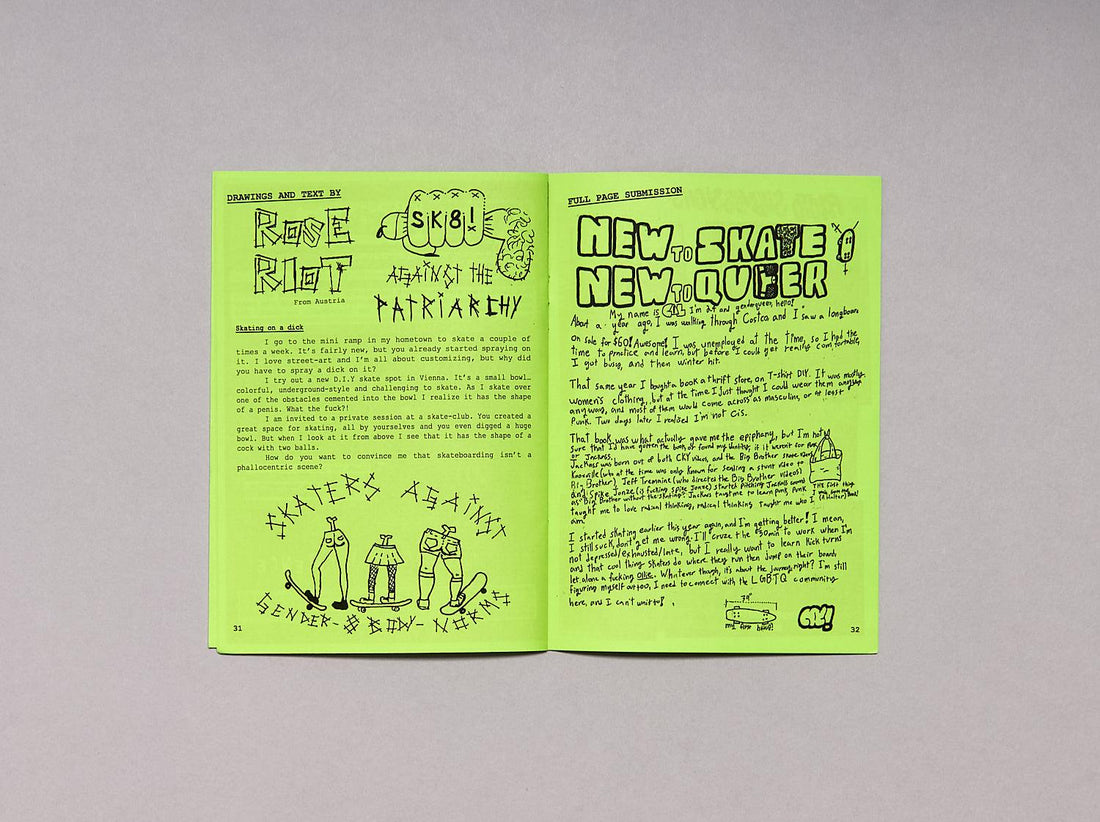 DRAWINGS AND TEXT BY
ROSE
RIOT
From Austria
SK8!
AGAINST THE
PATRIARCHY
Skating on a dick
I go to the mini ramp in my hometown to skate a couple of
times a week. It's fairly new, but you already started spraying on
it. I love street-art and I'm all about customizing, but why did
you have to spray a dick on it?
I try out a new D.I.Y skate spot in Vienna. It's a small bowl…
colorful, underground-style and challenging to skate. As I skate over
one of the obstacles cemented into the bowl I realize it has the shape
of a penis. What the fuck?!
I am invited to a private session at a skate-club. You created a
great space for skating, all by yourselves and you even digged a huge
bowl. But when I look at it from above I see that it has the shape of a
cock with two balls.
How do you want to convince me that skateboarding isn't a
phallocentric scene?
SKATERS AGAINST
GENDER- & BODY- NORMS
31
FULL PAGE SUBMISSION
NEW TO SKATE
NEW TO QUEER
My name is I'm and genderqueer, hello!
About a year ago, I was walking through Costco and I saw a longboard
on sale for $60! Awesome! I was unemployed at the time, so I had the
time to practice and learn, but before I could get really comfortable,
I got busy, and then winter hit.
That same year I bought a book a thrift store, on T-shirt DIY. It was mostly
women's clothing, but at the time I just thought I could wear them
anyways, and most of them would come across as masculine, or at least
Punk. Two days later I realised I'm not Cis.
That book was what actually gave me the epiphany, but I'm not
sure that I'd have gotten the book, or found my identity, if it weren't for
or Jackass.
Jackass was born out of both CKY videos, and the Big Brother skate videos
Knoxville (who at the time was only known for sending a stunt video to
Big Brother), Jeff Tremaine (who directed the Big Brother videos)
and Spike Jonze (is fucking Spike Jonze) started pitching Jackass around
as "Big Brother without the skating". Jackass taught me to learn punk, Punk
taught me to love radical thinking, radical thinking taught me who I
am.
I started skating earlier this year again, and I'm getting better! I mean,
I still suck, don't get me wrong. I'll cruze the 30min to work when I'm
not depressed/exhausted/late, but I really want to learn kick turns
and that cool thing skaters do where they run then jump on their board,
let alone a fucking Ollie. Whatever though, it's about the journey, right? I'm still
figuring myself out too, I need to connect with the LGBTQ community
here, and I can't wait to!
my first board!
32